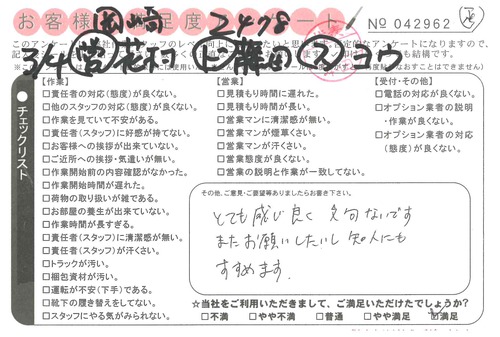 お客様満足度アンケート № 042962
岡崎 2478
3/4 営 花村
【作業】
□責任者の対応(態度)が良くない。
□他のスタッフの対応(態度)が良くない。
□作業を見ていて不安がある。
□責任者(スタッフ)に好感が持てない。
□お客様への挨拶が出来ていない。
□ご近所への挨拶・気遣いが無い。
□作業開始前の内容確認がなかった。
□作業開始時間が遅れた。
□荷物の取り扱いが雑である。
□お部屋の養生が出来ていない。
□作業時間が長すぎる。
□責任者(スタッフ)に清潔感が無い。
□責任者(スタッフ)が汗くさい。
□トラックが汚い。
□梱包資材が汚い。
□運転が不安(下手)である。
□靴下の履き替えをしてない。
□スタッフにやる気がみられない。
チェックリスト
【営業】
□見積もり時間に遅れた。
□見積もり時間が長い。
□営業マンに清潔感が無い。
□営業マンが煙草くさい。
□営業マンが汗くさい。
□営業態度が良くない。
□営業の説明と作業が一致してない。
【受付・その他】
□電話の対応が良くない。
□オプション業者の説明
・作業が良くない。
□オプション業者の対応
(態度)が良くない。
その他、ご意見・ご要望等ありましたらお書き下さい。
とても感じ良く 文句ないです
またお願いしたいし 知人にも
すすめます.
☆当社をご利用いただきまして、ご満足いただけたでしょうか?
□不満 □やや不満 □普通 □やや満足 □満足